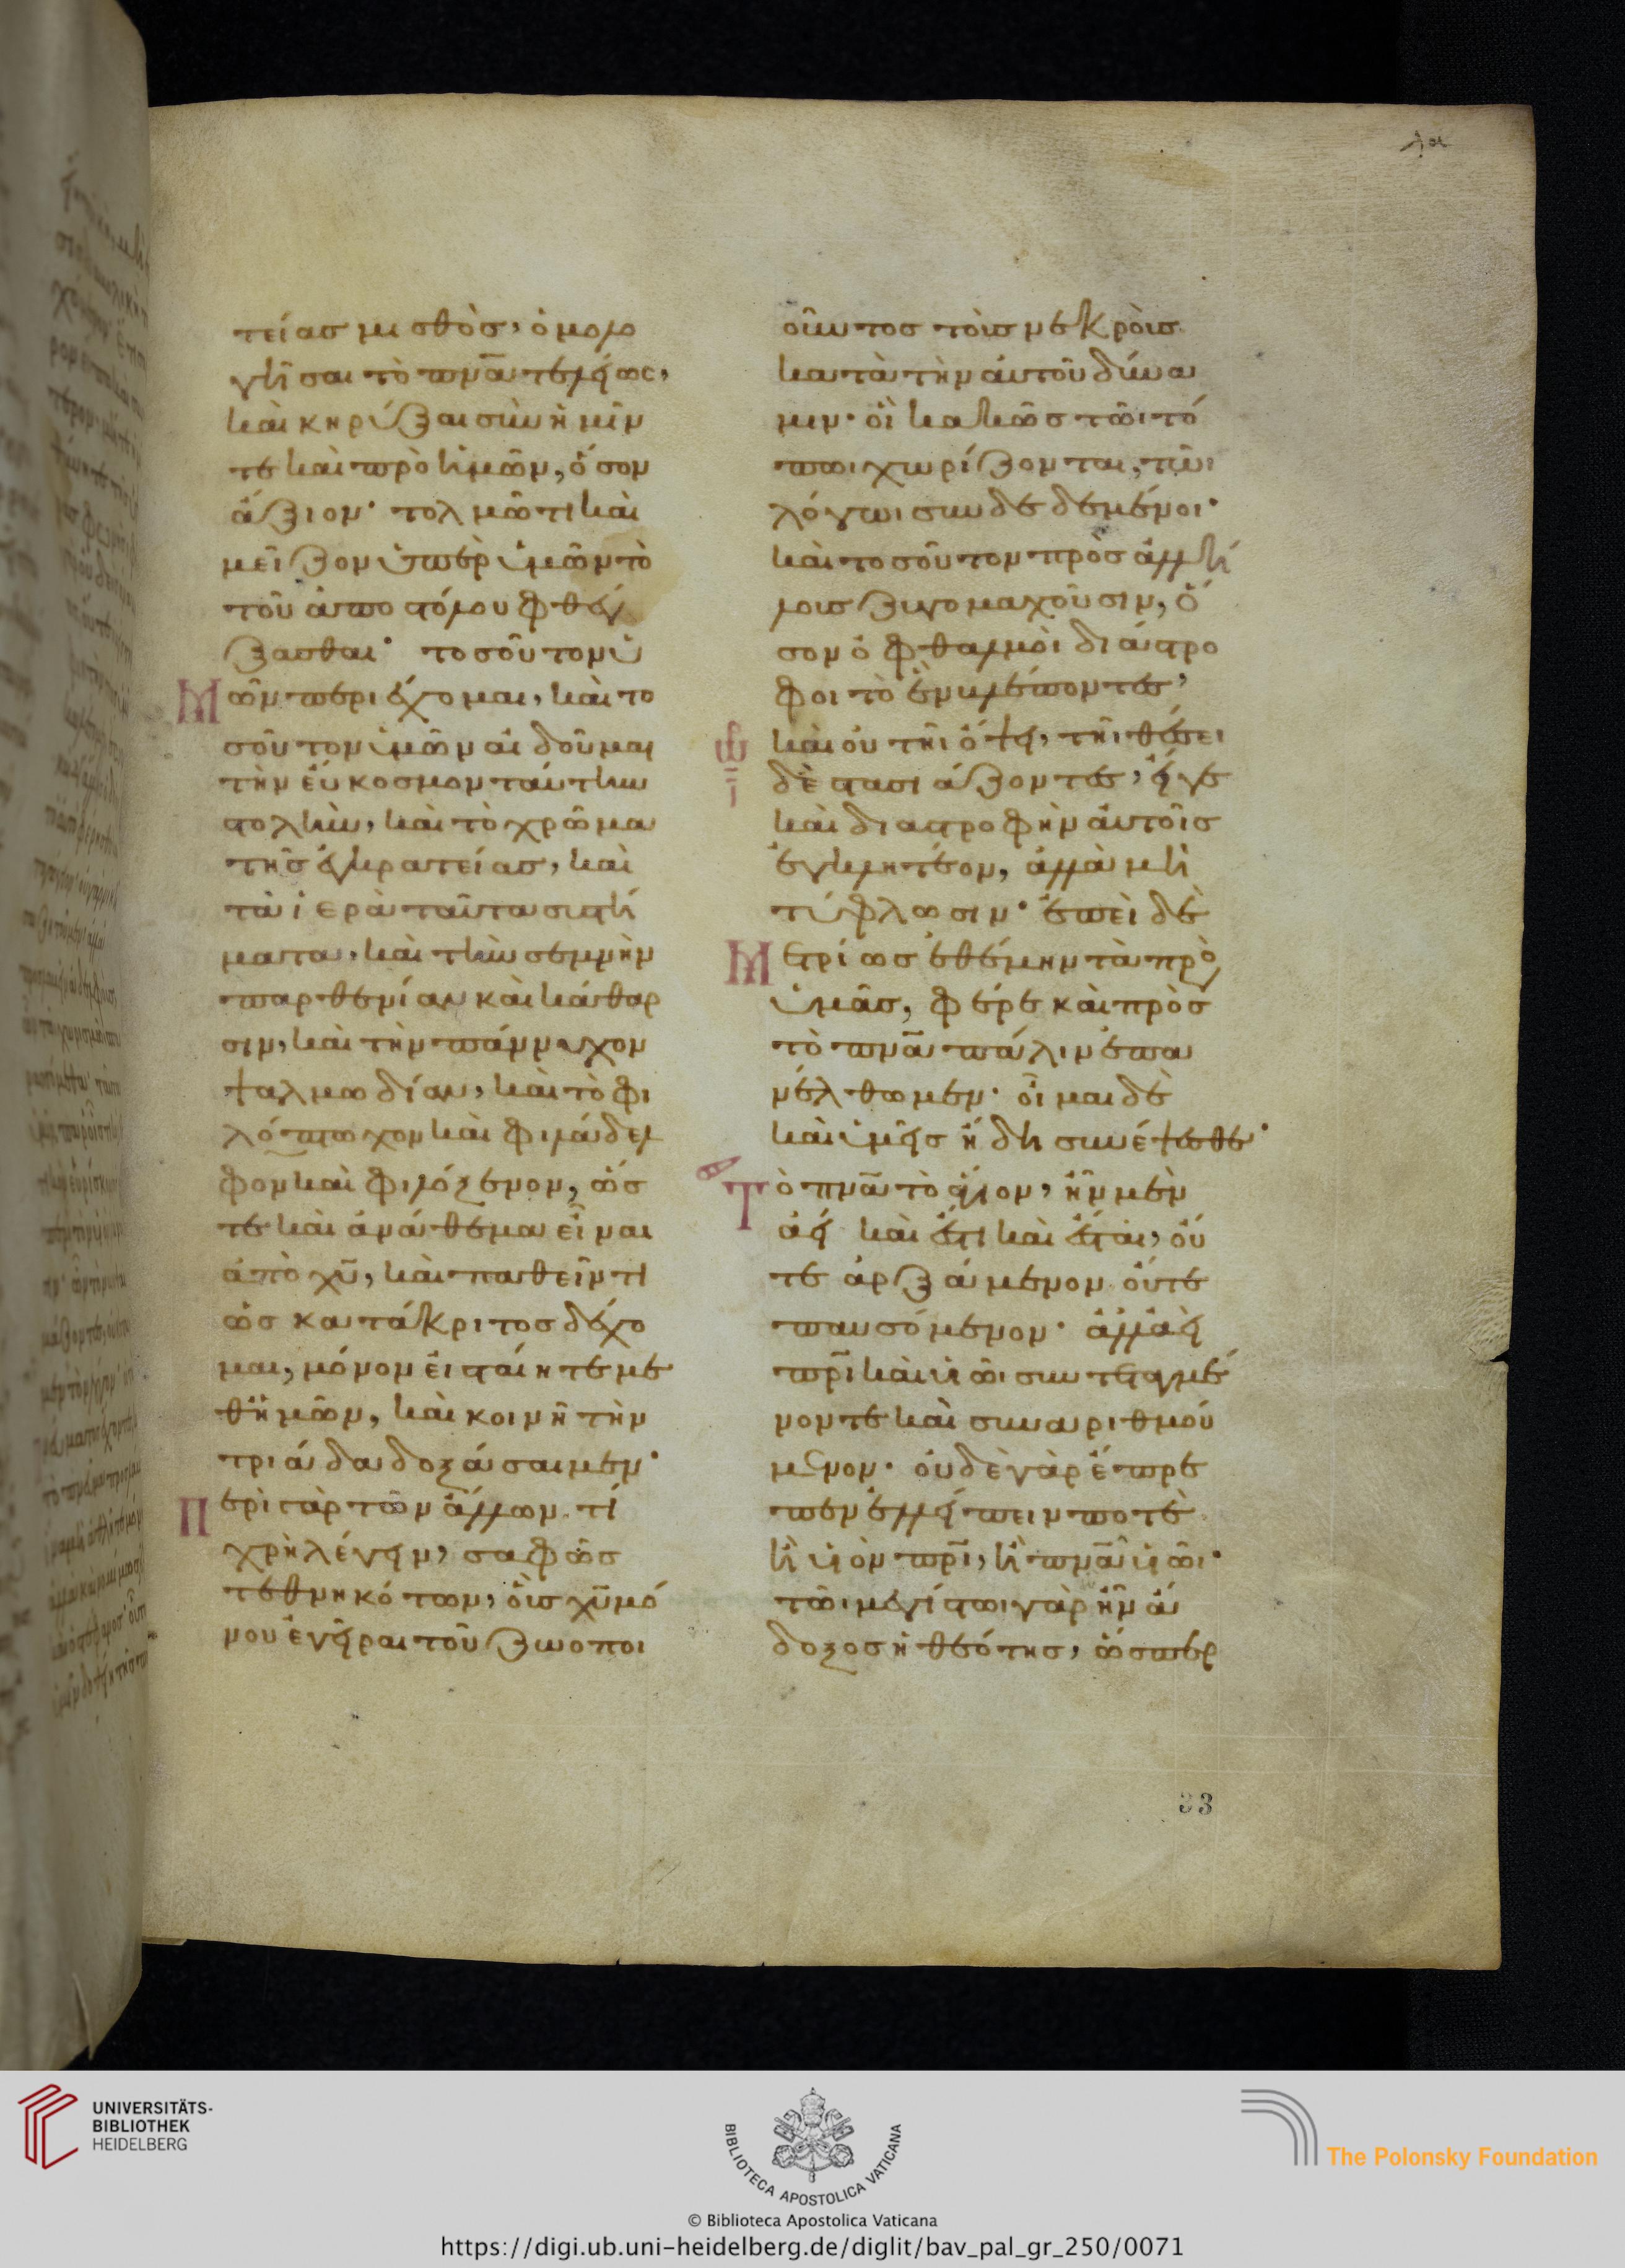 λα
τείας μισθὸς, ὁμολο
γῆσαι τὸ πν̅α τελείως,
καὶ κηρύξαι σὺν ἡμῖν
τε καὶ πρὸ ἡμῶν, ὅσον
ἄξιον· τολμῶ τι καὶ
μεῖζον ὑπὲρ ὑμῶν τὸ
τοῦ ἀποστόλου φθέγ
ξασθαι· τοσοῦτον ὑ
Μῶν περιέχομαι, καὶ το
σοῦτον ὑμῶν αἰδοῦμαι
τὴν εὔκοσμον ταύτην
στολὴν, καὶ τὸ χρῶμα
τῆς ἐγκρατείας, καὶ
τὰ ἱερὰ ταῦτα συστή
ματα, καὶ τὴν σεμνὴν
παρθενίαν καὶ κάθαρ
σιν, καὶ τὴν πάννυχον
ψαλμωδίαν, καὶ τὸ φι
λόπτωχον καὶ φιλάδελ
φον καὶ φιλόξενον, ὥς
τε καὶ ἀνάθεμα εἶναι
ἀπὸ χυ̅, καὶ παθεῖν τι
ὡς κατάκριτος δέχο
μαι, μόνον εἰ σταίητε με
θ' ἡμῶν, καὶ κοινῆ τὴν
τριάδα δοξάσαιμεν·
Περὶ γὰρ τῶν ἄλλων τί
χρὴ λέγειν, σαφῶς
τεθνηκότων, οὓς χυ̅ μό
νου ἐγεῖραι τοῦ ζωοποι
οῦντος τοὺς νεκροὺς
κατὰ τὴν αὐτοῦ δύνα
μιν· οἳ κακῶς τῶι τό
πωι χωρίζονται, τῶι
λόγωι συνδεδεμένοι·
καὶ τοσοῦτον πρὸς ἀλλή
λους ζυγομαχοῦσιν, ὅ
σον ὀφθαλμοὶ διάστρο
φοι τὸ ἓν βλέποντες,
καὶ οὐ τῆι ὄψει, τῆι θέσει
δὲ στασιάζοντες, εἴγε
καὶ διαστροφὴν αὐτοῖς
ἐγκλητέον, ἀλλὰ μὴ
τύφλωσιν· ἐπεὶ δὲ
Μετρίως ἐθέμην τὰ πρὸς
ὑμᾶς, φέρε καὶ πρὸς
τὸ πν̅α πάλιν ἐπα
νέλθωμεν· οἶμαι δὲ
καὶ ὑμεῖς ἤδη συνέψεσθε·
Τὸ πν̅α τὸ ἅγιον, ἦν μὲν
ἀεὶ καὶ ἔστι καὶ ἔσται, οὔ
τε ἀρξάμενον οὔτε
παυσόμενον· ἀλλ' ἀεὶ
πρι̅ καὶ υἱῶι συντεταγμέ
νον τε καὶ συναριθμού
μενον· οὐδὲ γὰρ ἔπρε
πεν ἐλλείπειν ποτὲ
ἢ υἱὸν πρι̅, ἢ πν̅α υἱῶι·
τῶι μεγίστωι γὰρ ἦν ἄ
δοξος ἡ θεότης, ὥσπερ
33
UNIVERSITÄTS-
BIBLIOTHEK
HEIDELBERG
BIBLIOTECA APOSTOLICA VATICANA
The Polonsky Foundation
© Biblioteca Apostolica Vaticana
https://digi.ub.uni-heidelberg.de/diglit/bav_pal_gr_250/0071